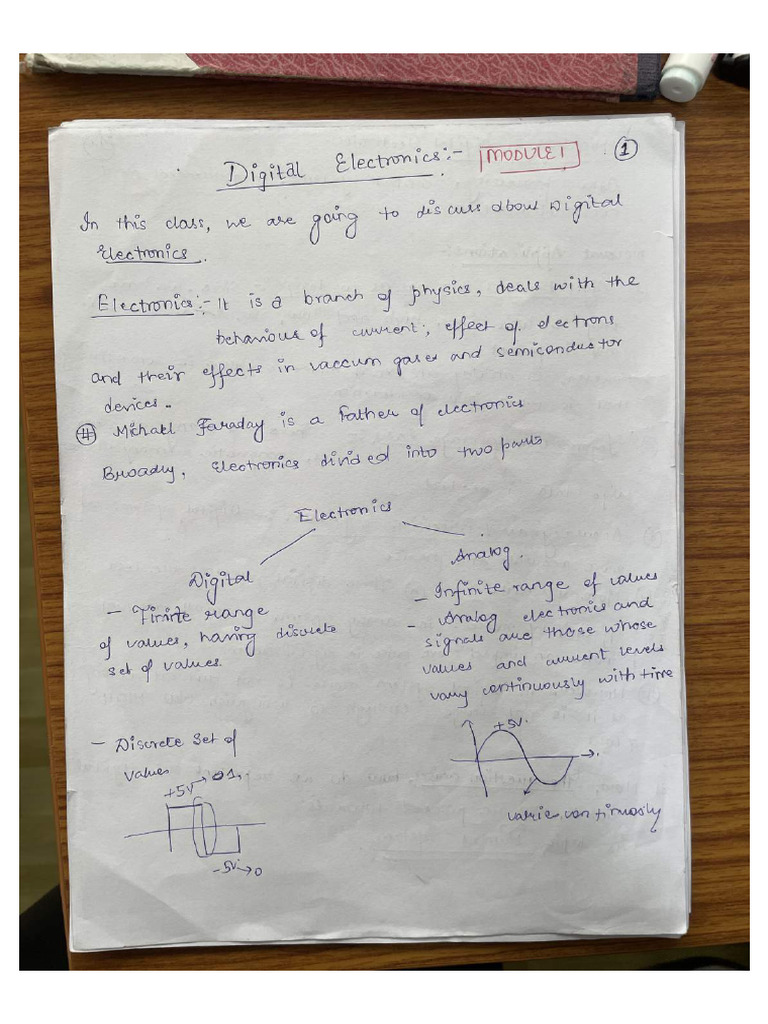 Digital Electronics:- MODULE 1 1
In this class, we are going to discuss about Digital
Electronics.
Electronics:- It is a branch of physics, deals with the
behaviour of current, effect of electrons
and their effects in vaccum gases and semiconductor
devices.
# Michael Faraday is a Father of electronics
Broadly, Electronics divided into two parts
Electronics
Digital
Analog.
- Finite range
of values, having discrete
set of values.
- Infinite range of values
- Analog electronics and
signals are those whose
values and current levels
vary continuously with time
- Discrete Set of
values
+5V → 1
-5V → 0
+5V.
varie continuosly